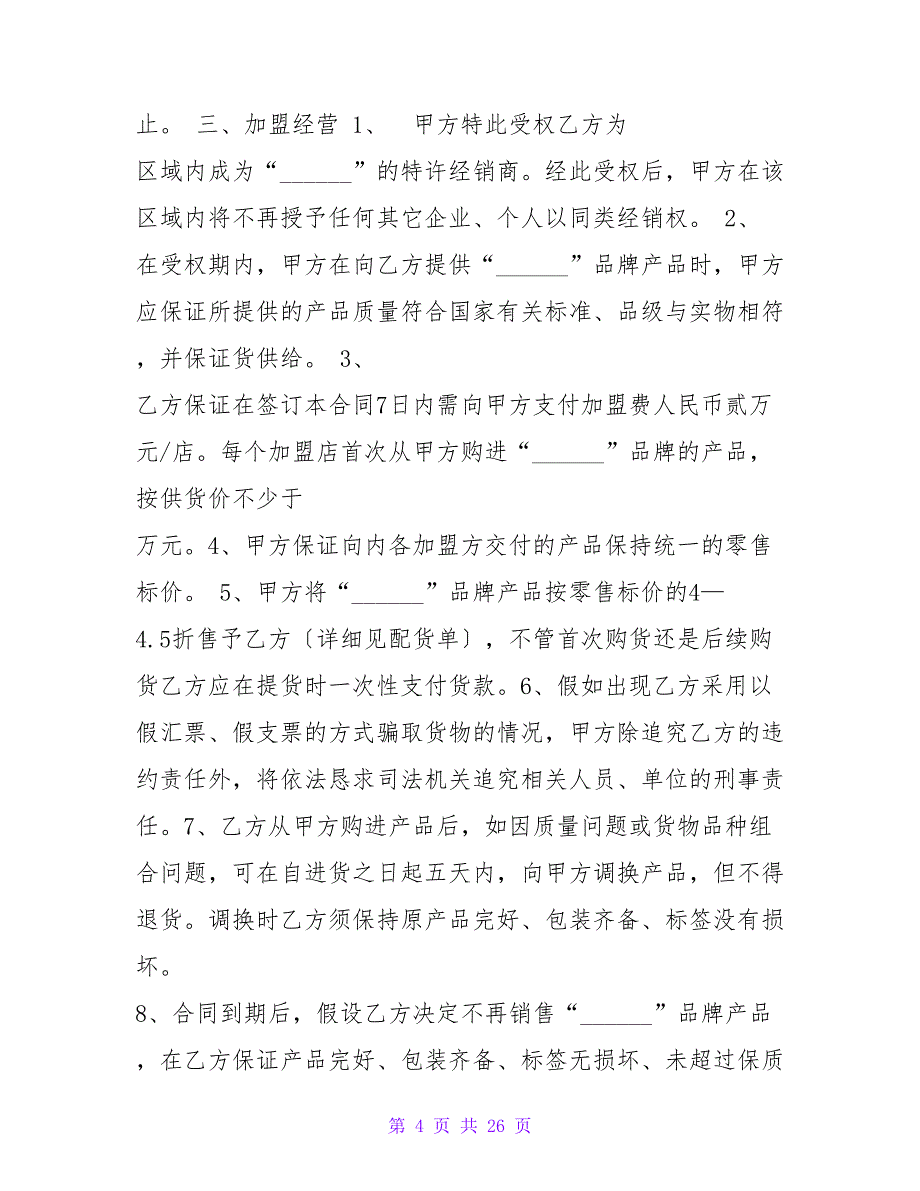 止。 三、加盟经营 1、  甲方特此受权乙方为
区域内成为“______”的特许经销商。经此受权后，甲方在该
区域内将不再授予任何其它企业、个人以同类经销权。 2、
在受权期内，甲方在向乙方提供“______”品牌产品时，甲方
应保证所提供的产品质量符合国家有关标准、品级与实物相符
，并保证货供给。 3、
乙方保证在签订本合同7日内需向甲方支付加盟费人民币贰万
元/店。每个加盟店首次从甲方购进“______”品牌的产品，
按供货价不少于
万元。4、甲方保证向内各加盟方交付的产品保持统一的零售
标价。 5、甲方将“______”品牌产品按零售标价的4—
4.5折售予乙方〔详细见配货单〕，不管首次购货还是后续购
货乙方应在提货时一次性支付货款。6、假如出现乙方采用以
假汇票、假支票的方式骗取货物的情况，甲方除追究乙方的违
约责任外，将依法恳求司法机关追究相关人员、单位的刑事责
任。7、乙方从甲方购进产品后，如因质量问题或货物品种组
合问题，可在自进货之日起五天内，向甲方调换产品，但不得
退货。调换时乙方须保持原产品完好、包装齐备、标签没有损
坏。
8、合同到期后，假设乙方决定不再销售“______”品牌产品
，在乙方保证产品完好、包装齐备、标签无损坏、未超过保质
第 4 页 共 26 页